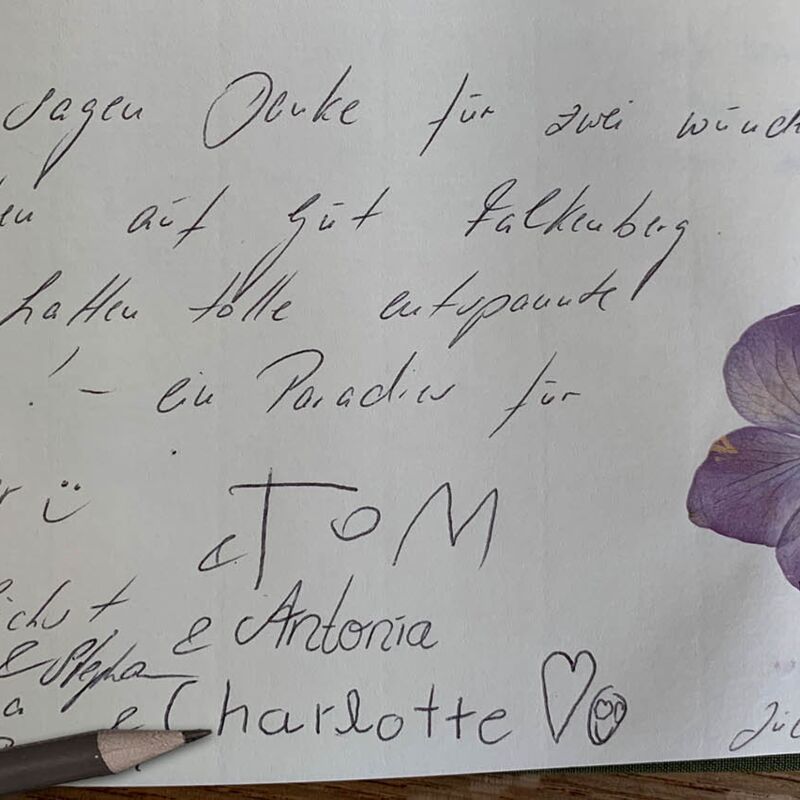 sagen Danke für zwei
auf Gut Falkenberg
hatten tolle entspannte
! - ein Paradies für
TOM
& Antonia
& Stephan
& Charlotte